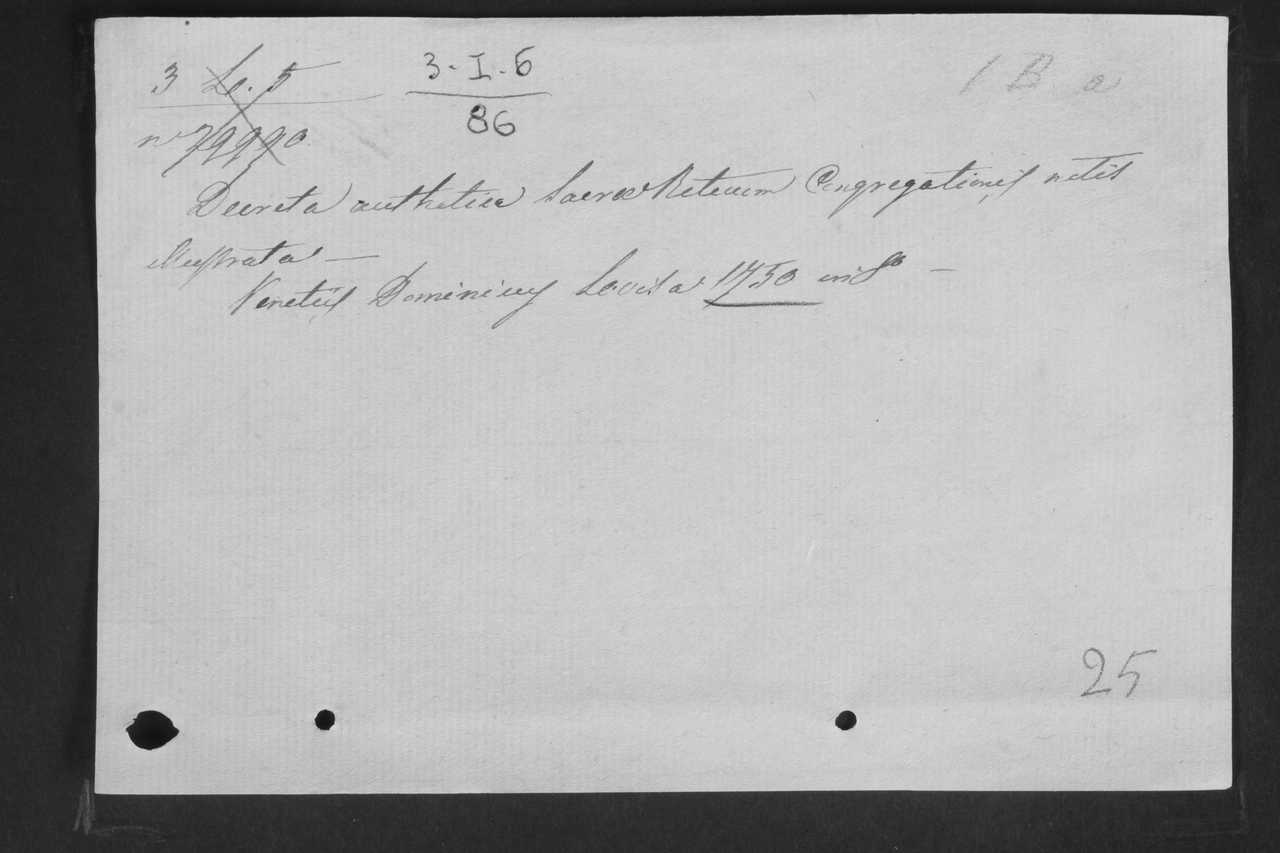 3 Lo. 5
3-I-6
1 B a
86
nº
Decreta authetica Sacro Rituum Congregationis notis
illustrata —
Venetiis Dominicus Lovisa 1750 in 8º —
25